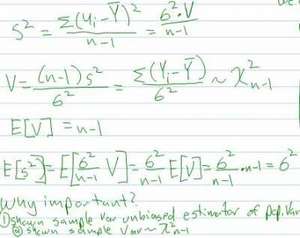 s² = Σ(Yi-Ȳ)²/n-1 = 6²·V/n-1
V = (n-1)s²/6² = Σ(Yi-Ȳ)²/6² ~ χ²n-1
E[V] = n-1
E[s²] = E[6²/n-1 V] = 6²/n-1 E[V] = 6²/n-1 · n-1 = 6²
Why important?
① shown sample var unbiased estimator of pop. var
② shown sample var ~ χ²n-1